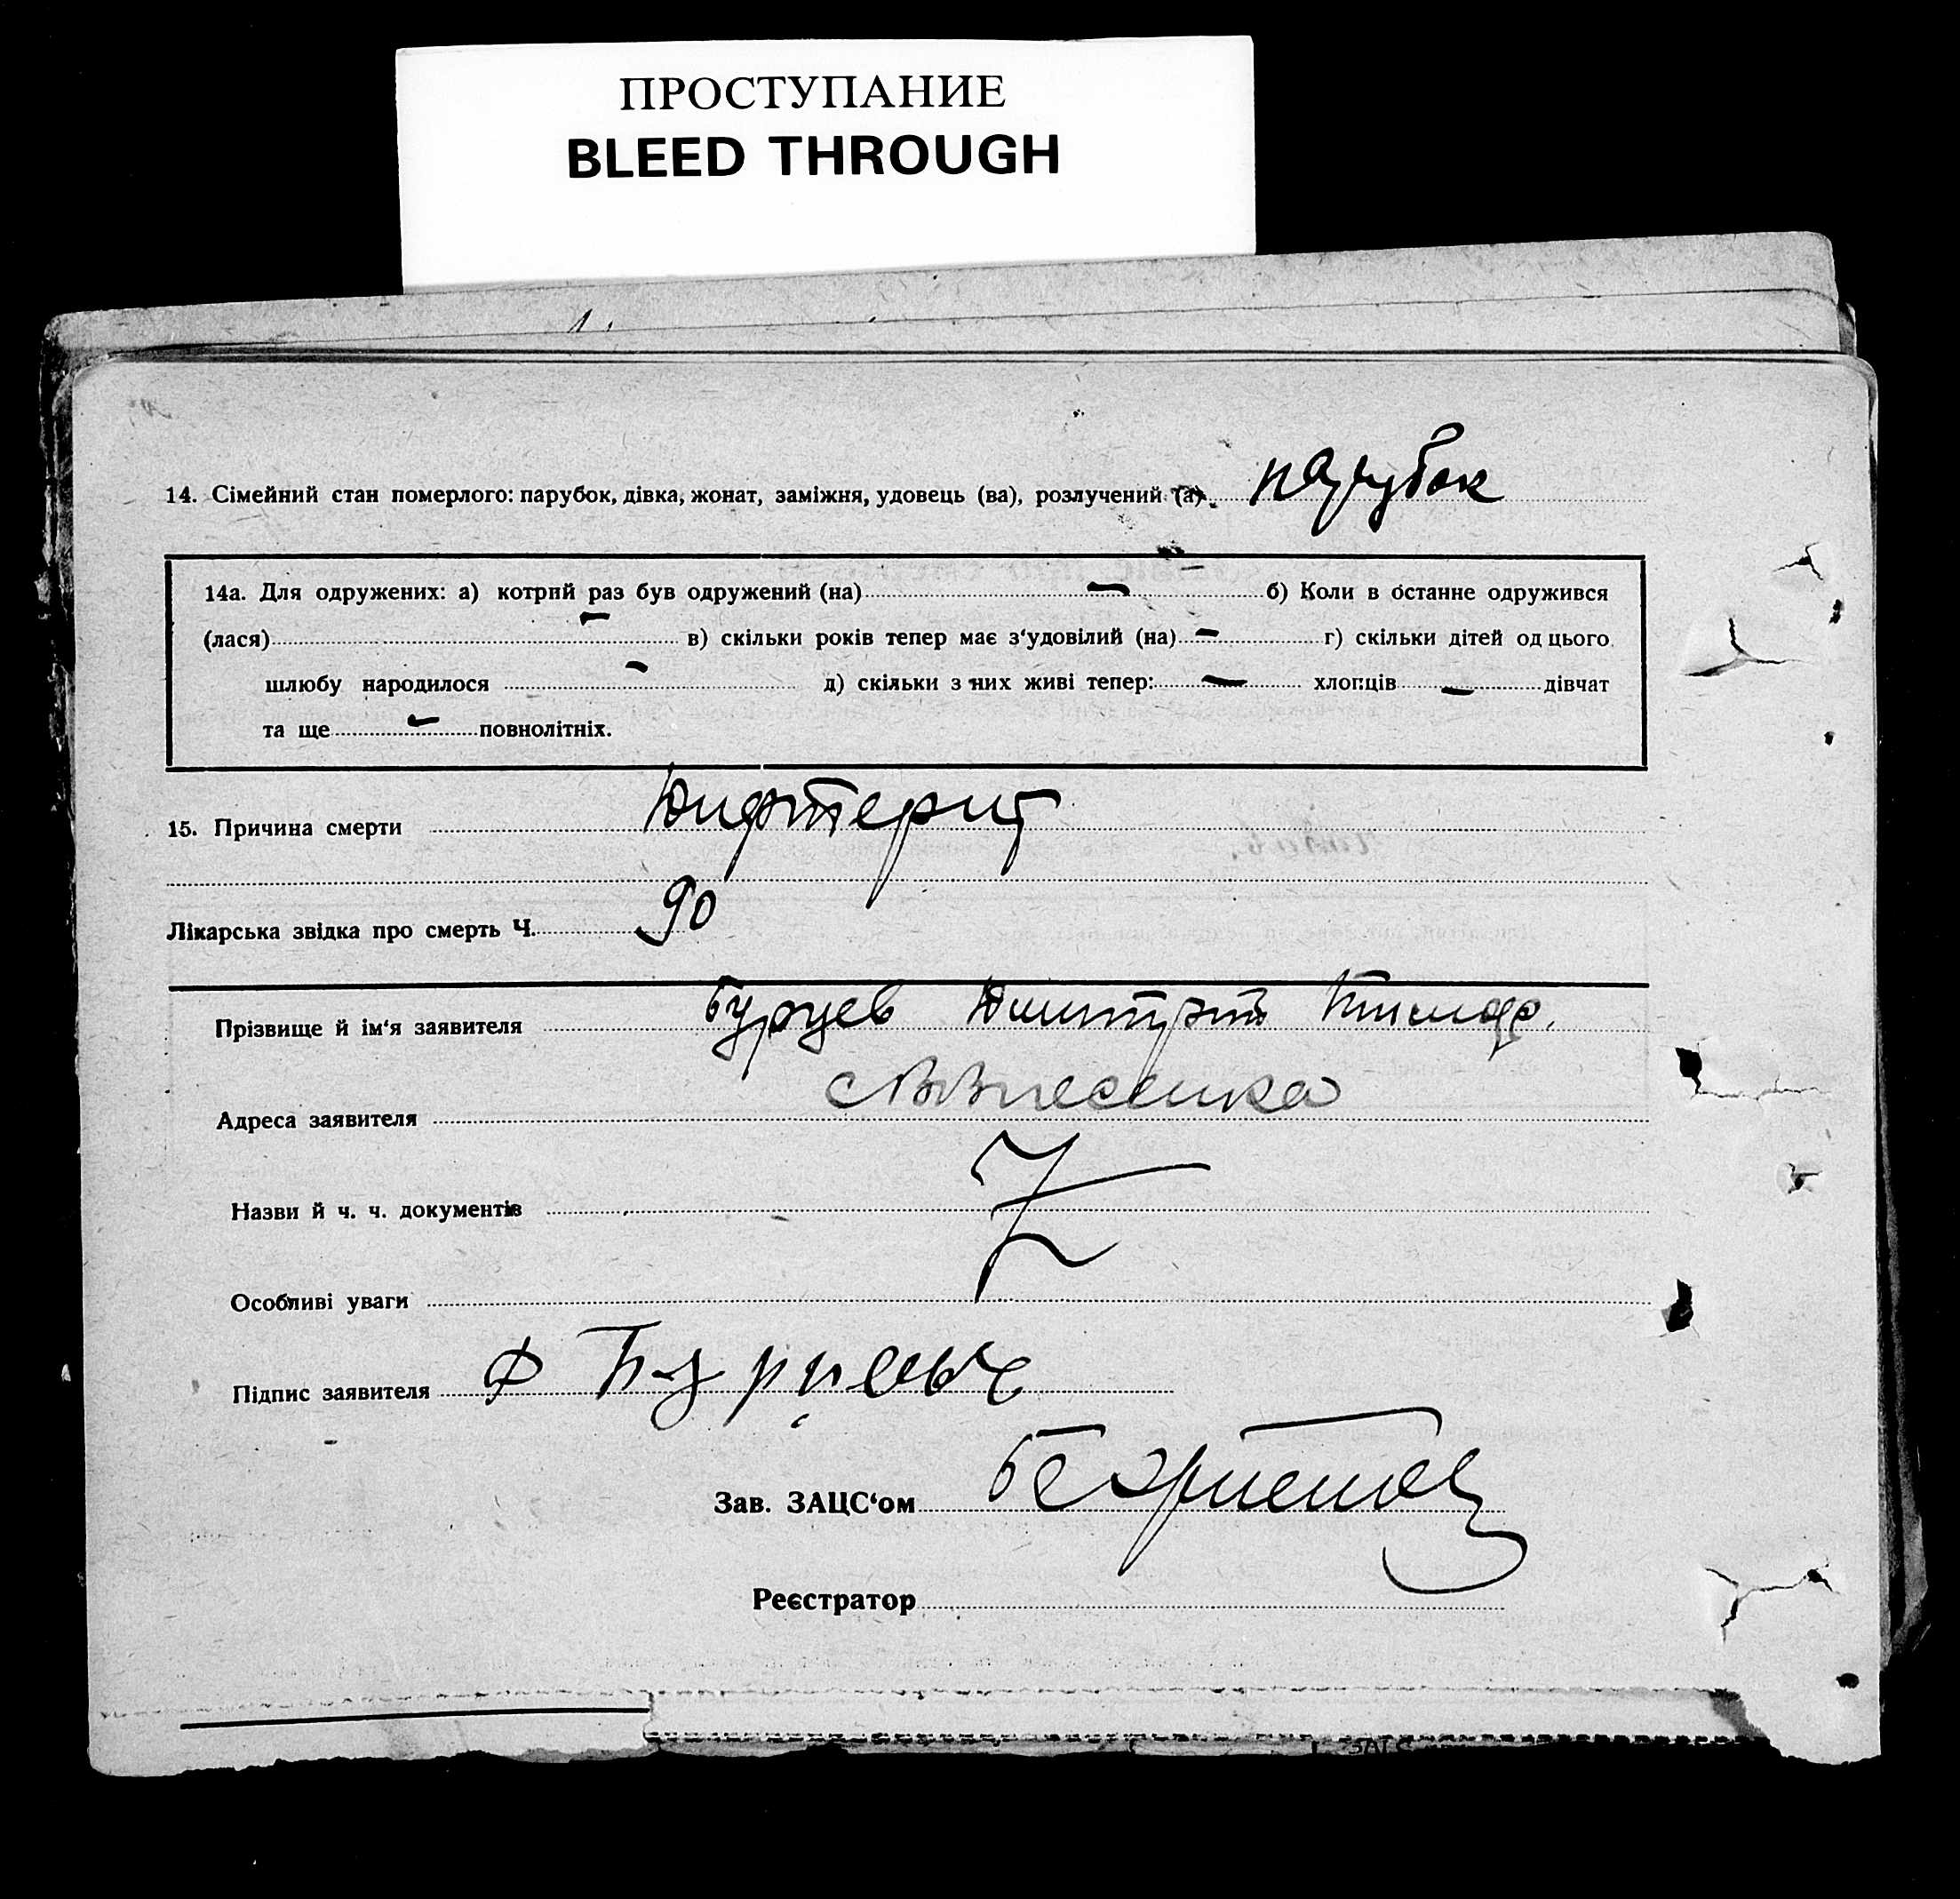 ПРОСТУПАНИЕ
BLEED THROUGH
14. Сімейний стан померлого: парубок, дівка, жонат, заміжня, удовець (ва), розлучений (а) парубок
14а. Для одружених: а) котрий раз був одружений (на) — б) Коли в останне одружився
(лася) — в) скільки років тепер має з‘удовілий (на) — г) скільки дітей од цього
шлюбу народилося — д) скільки з них живі тепер: — хлопців — дівчат
та ще — повнолітніх.
15. Причина смерти Дифтерит
Лікарська звідка про смерть Ч. 90
Прізвище й ім‘я заявителя Бурцев Дмитрий
Адреса заявителя
Назви й ч. ч. документів
Особливі уваги
Підпис заявителя
Зав. ЗАЦС‘ом
Реєстратор